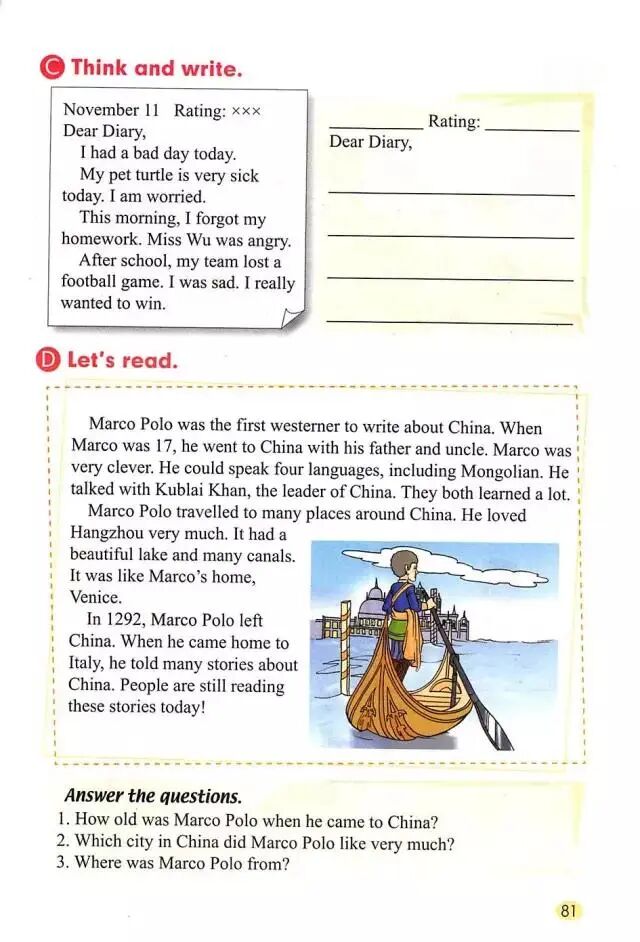 C Think and write.
November 11 Rating: ×××
Dear Diary,
I had a bad day today.
My pet turtle is very sick
today. I am worried.
This morning, I forgot my
homework. Miss Wu was angry.
After school, my team lost a
football game. I was sad. I really
wanted to win.
Rating:
Dear Diary,
D Let's read.
Marco Polo was the first westerner to write about China. When
Marco was 17, he went to China with his father and uncle. Marco was
very clever. He could speak four languages, including Mongolian. He
talked with Kublai Khan, the leader of China. They both learned a lot.
Marco Polo travelled to many places around China. He loved
Hangzhou very much. It had a
beautiful lake and many canals.
It was like Marco's home,
Venice.
In 1292, Marco Polo left
China. When he came home to
Italy, he told many stories about
China. People are still reading
these stories today!
Answer the questions.
1. How old was Marco Polo when he came to China?
2. Which city in China did Marco Polo like very much?
3. Where was Marco Polo from?
81